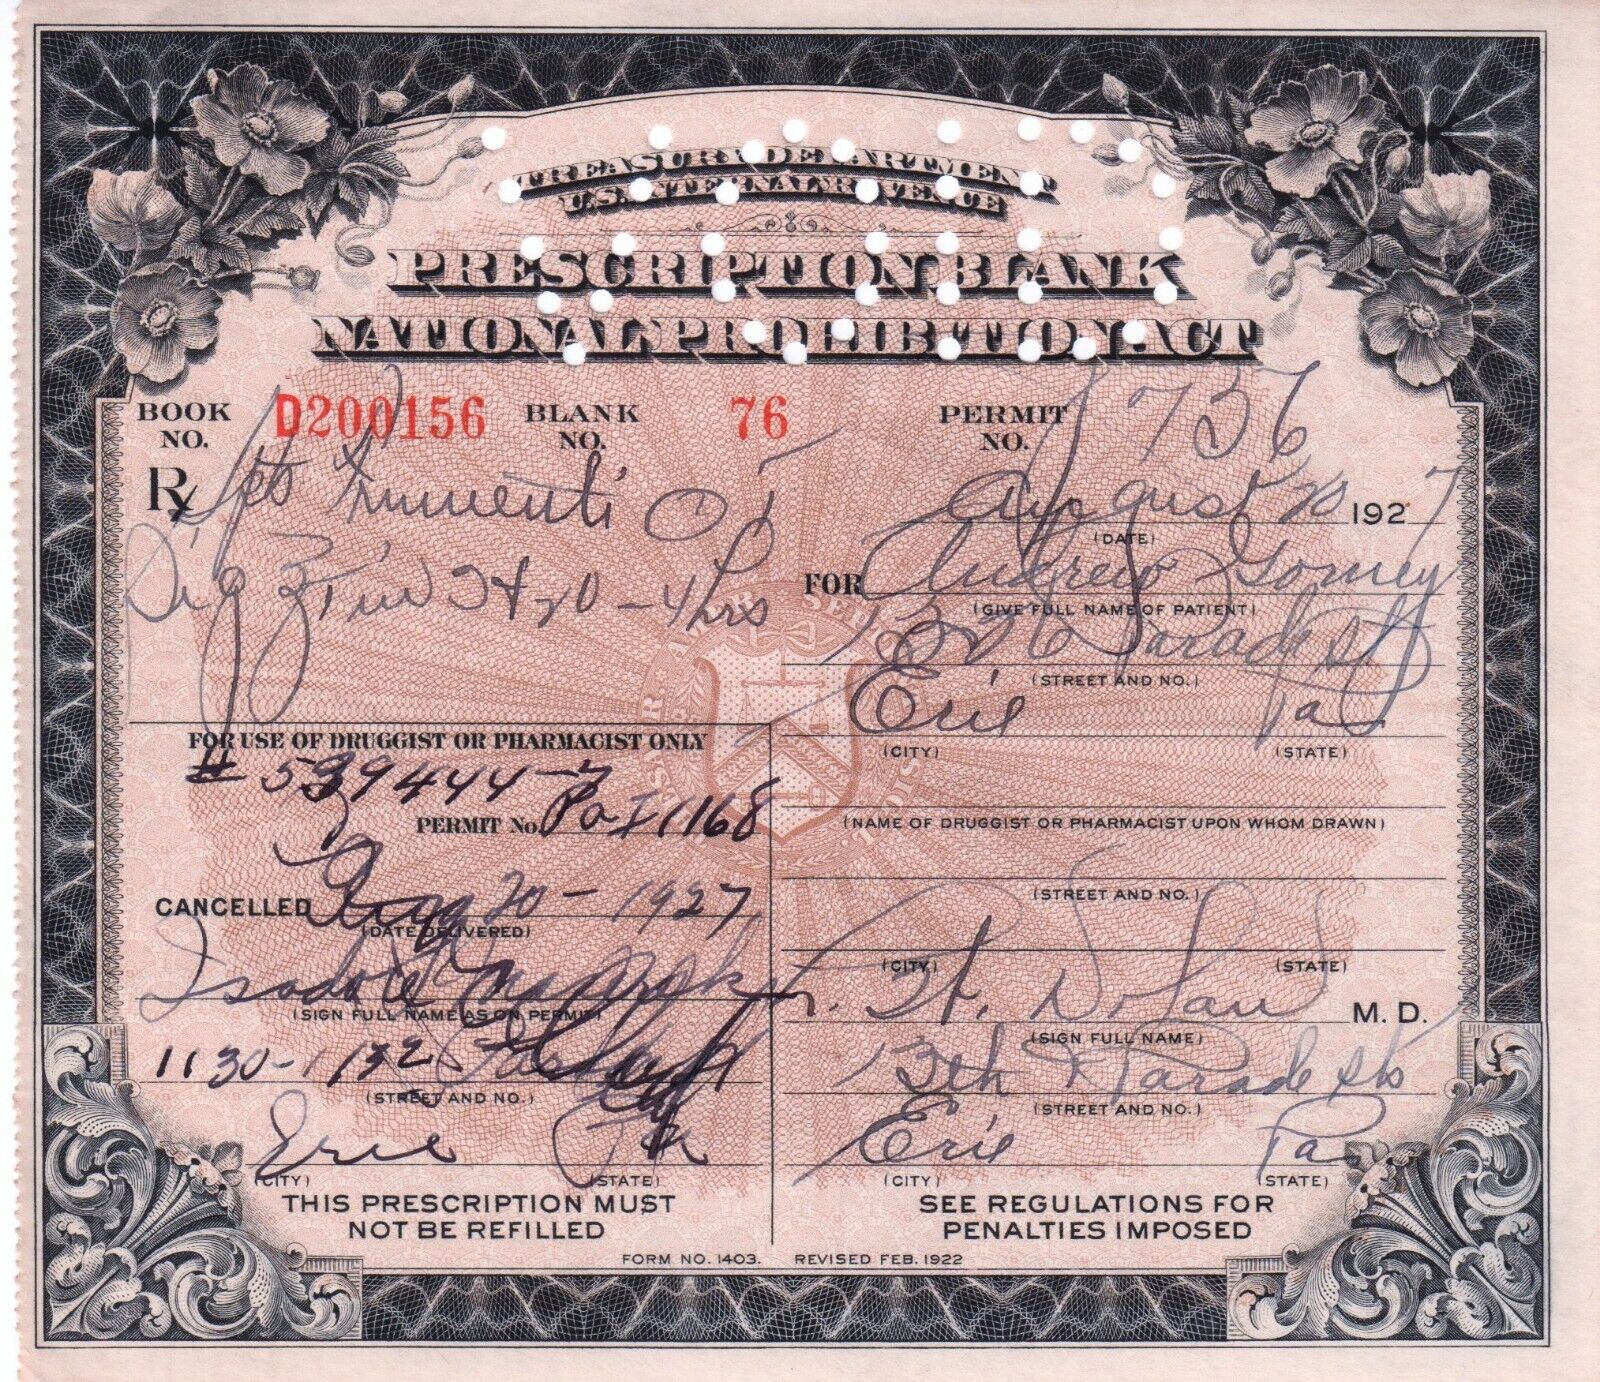 TREASURY DEPARTMENT
U.S. INTERNAL REVENUE
PRESCRIPTION BLANK
NATIONAL PROHIBITION ACT
BOOK NO. D200156 BLANK NO. 76 PERMIT NO. 736
Rx Frumenti
Sig 4 hrs
August 20 1927
(DATE)
FOR Andrew Gorney
(GIVE FULL NAME OF PATIENT)
Parade St
(STREET AND NO.)
Erie Pa
(CITY) (STATE)
(NAME OF DRUGGIST OR PHARMACIST UPON WHOM DRAWN)
(STREET AND NO.)
(CITY) (STATE)
Nolan M. D.
(SIGN FULL NAME)
13th & Parade sts
(STREET AND NO.)
Erie Pa
(CITY) (STATE)
SEE REGULATIONS FOR
PENALTIES IMPOSED
FOR USE OF DRUGGIST OR PHARMACIST ONLY
# 539444-7
PERMIT No. Pa I 1168
CANCELLED Aug 20 - 1927
(DATE DELIVERED)
Isadore
(SIGN FULL NAME AS ON PERMIT)
1130-1132
(STREET AND NO.)
Erie Pa
(CITY) (STATE)
THIS PRESCRIPTION MUST
NOT BE REFILLED
FORM NO. 1403. REVISED FEB. 1922